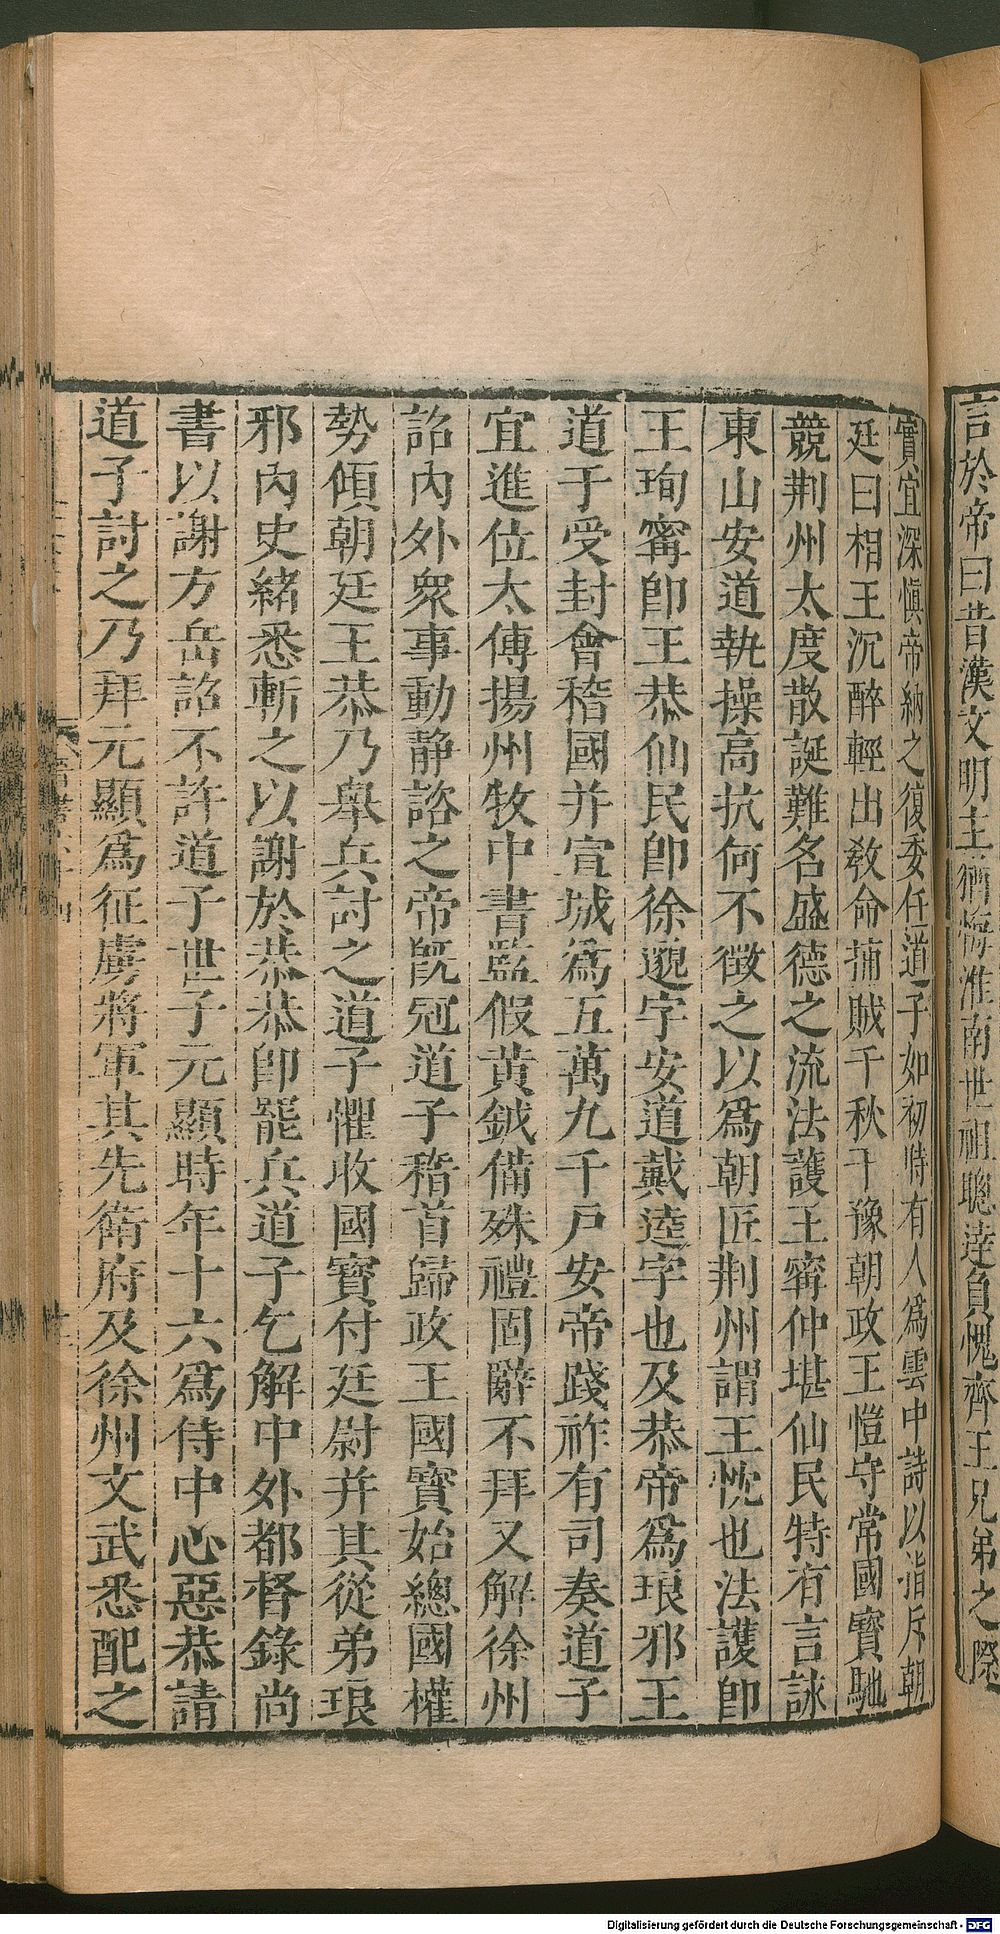 言於帝曰昔漢文明主猶悔淮南世祖聰達負愧齊王兄弟之際
實宜深愼帝納之復委任道子如初時有人爲雲中詩以指斥朝
廷曰相王沉醉輕出敎命捕賊千秋干豫朝政王愷守常國寶馳
競荆州大度散誕難名盛德之流法護王寗仲堪仙民特有言詠
東山安道執操高抗何不徵之以爲朝匠荆州謂王忱也法護卽
王珣寗卽王恭仙民卽徐邈字安道戴逵字也及恭帝爲琅邪王
道子受封會稽國并宣城爲五萬九千戸安帝踐祚有司奏道子
宜進位太傅揚州牧中書監假黄鉞備殊禮固辭不拜又解徐州
詔内外衆事動静諮之帝旣冠道子稽首歸政王國寳始總國權
勢傾朝廷王恭乃舉兵討之道子懼收國寳付廷尉并其從弟琅
邪内史緒悉斬之以謝於恭恭卽罷兵道子乞解中外都督錄尚
書以謝方岳詔不許道子世子元顯時年十六爲侍中心惡恭請
道子討之乃拜元顯爲征虜將軍其先衛府及徐州文武悉配之
Digitalisierung gefördert durch die Deutsche Forschungsgemeinschaft - DFG